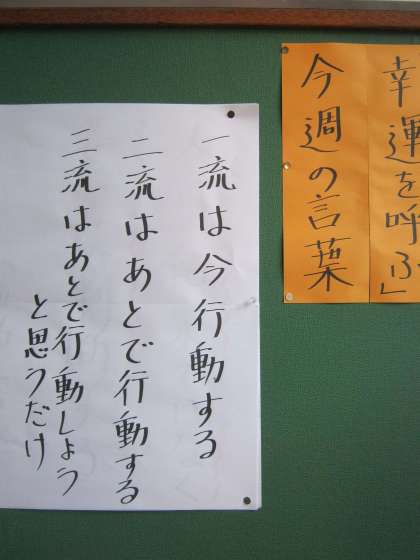 幸運を呼ぶ」
今週の言葉
一流は今行動する
二流はあとで行動する
三流はあとで行動しよう
と思うだけ